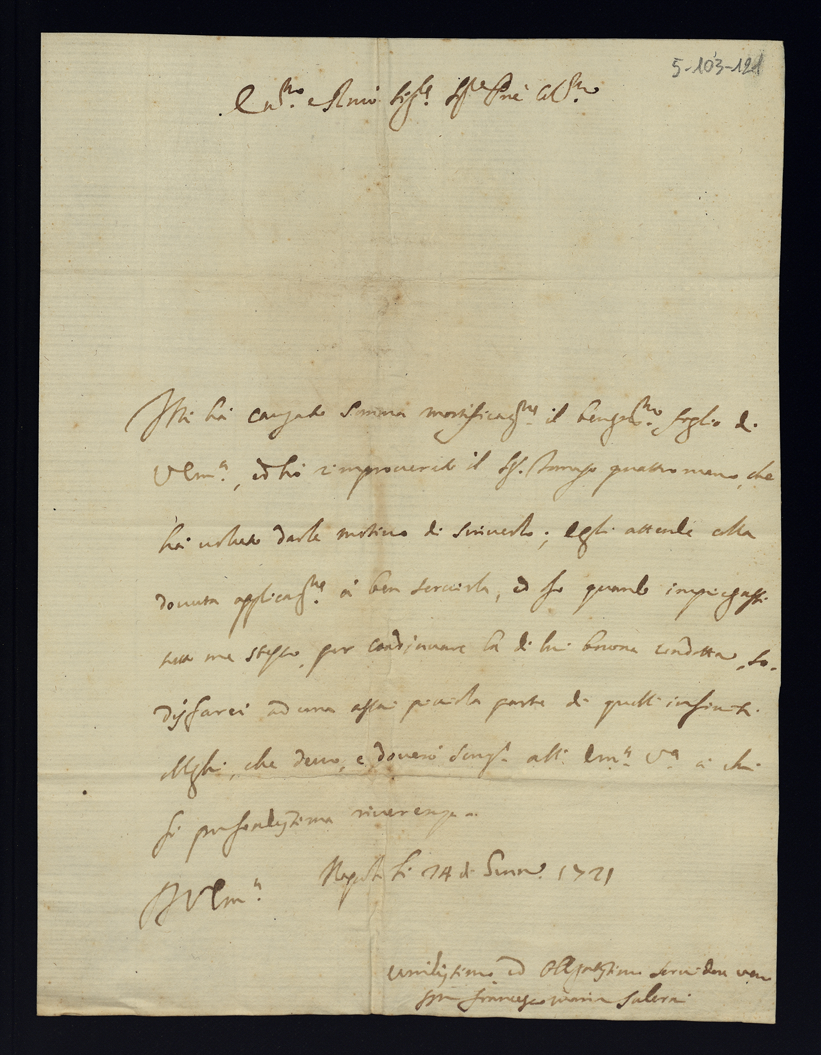 5-103-121
Em.mo e R.mo Sig.re Sig.re P.ne Col.mo
Mi hà causato somma mortificaz.ne il benig.mo foglio di
V Em.a, ed hò rimproverato il Sig. Tomaso quattromano, che
hà voluto darle motivo di scriverlo; egli attende colla
dovuta applicaz.ne à ben servirla, ed Io quando impiegassi
tutto me stesso, per continuare la di lui buona condotta, so-
disfarei ad una assai picciola parte di quelli infiniti
oblighi, che devo, e doverò semp.e all' Em.a V.a à chi
fò profondissima riverenza
D V Em.a Napoli li 14 di 1721
umilissimo ed Obligatissimo servidore vero
francesco maria